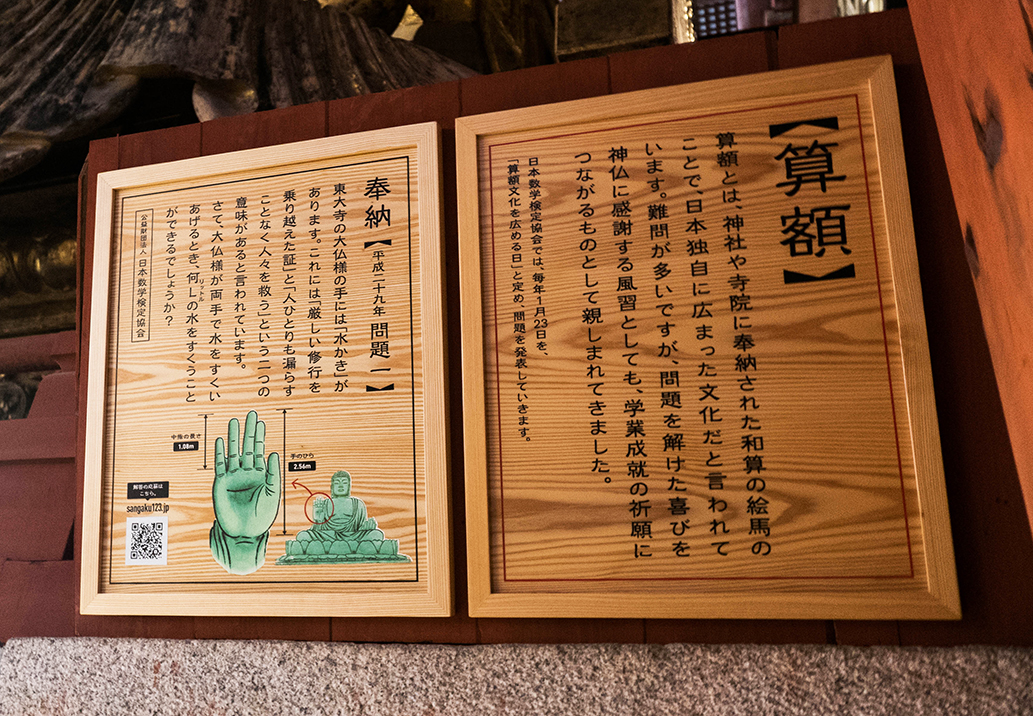 【算額】
算額とは、神社や寺院に奉納された和算の絵馬の
ことで、日本独自に広まった文化だと言われて
います。難問が多いですが、問題を解けた喜びを
神仏に感謝する風習としても、学業成就の祈願に
つながるものとして親しまれてきました。
日本数学検定協会では、毎年1月23日を、
「算額文化を広める日」と定め、問題を発表していきます。
奉納【平成二十九年 問題一】
東大寺の大仏様の手には「水かき」が
あります。これには「厳しい修行を
乗り越えた証」と「人ひとりも漏らす
ことなく人々を救う」という二つの
意味があると言われています。
さて、大仏様が両手で水をすくい
あげるとき、何L(リットル)の水をすくうこと
ができるでしょうか?
公益財団法人 日本数学検定協会
中指の長さ
1.08m
手のひら
2.56m
解答の応募は
こちら。
sangaku123.jp